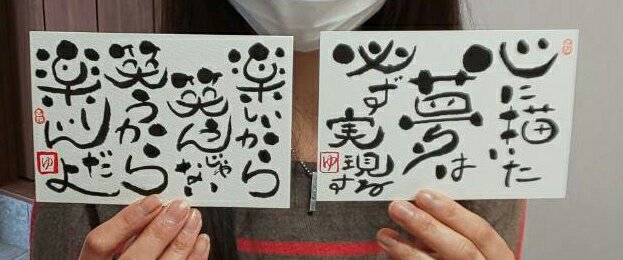 楽しいから
笑うんじゃない
笑うから
楽しいんだよ
ゆ
心に描いた
夢は
必ず実現する
ゆ